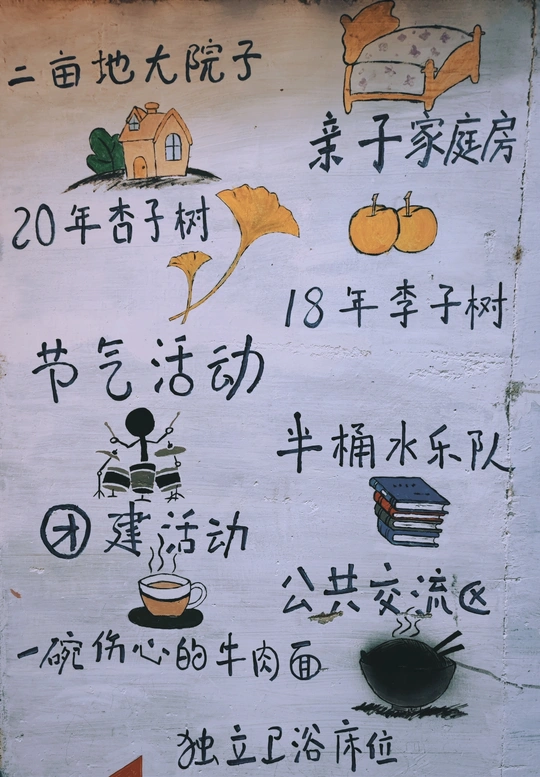 二亩地大院子
亲子家庭房
20年杏子树
18年李子树
节气活动
半桶水乐队
团建活动
公共交流区
一碗伤心的牛肉面
独立卫浴床位